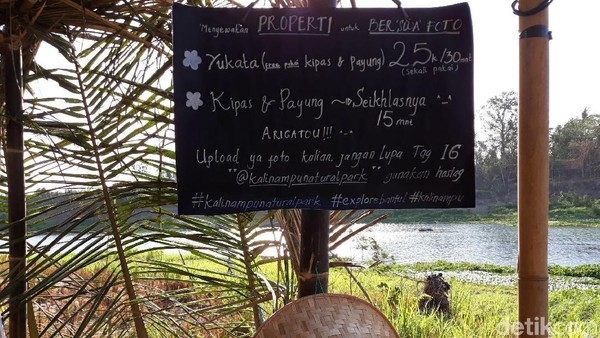 "Menyewakan PROPERTI untuk BERSUA FOTO
Yukata (free pakai kipas & Payung) 25k/30mnt
(sekali pakai)
Kipas & Payung Seikhlasnya
15 mnt
ARIGATOU!!!
Upload ya foto kalian jangan Lupa Tag IG
"@kalinampunaturalpark" gunakan hastag
#kalinampunaturalpark #explorebantul #kalinampu
detikcom